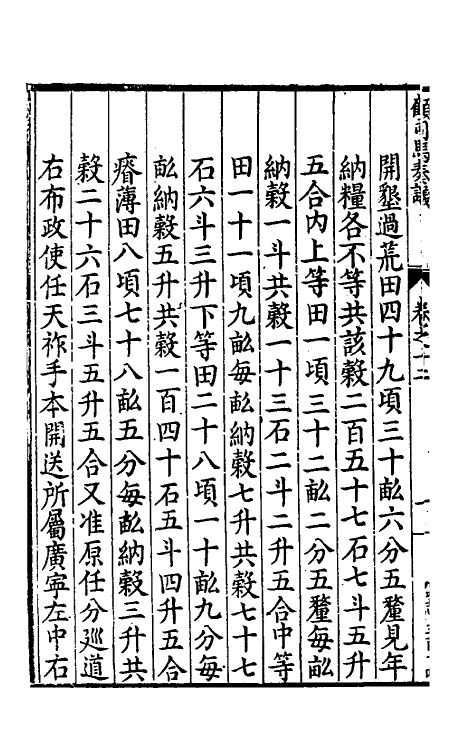 開墾過荒田四十九頃三十畝六分五釐見年
納糧各不等共該榖二百五十七石七斗五升
五合内上等田一頃三十二畝二分五釐每畝
納榖一斗共榖一十三石二斗二升五合中等
田一十一頃九畝每畝納榖七升共榖七十七
石六斗三升下等田二十八頃一十畝九分每
畝納榖五升共榖一百四十石五斗四升五合
瘠薄田八頃七十八畝五分每畝納榖三升共
榖二十六石三斗五升五合又准原任分廵道
右布政使任天祚手本開送所屬廣寧左中右